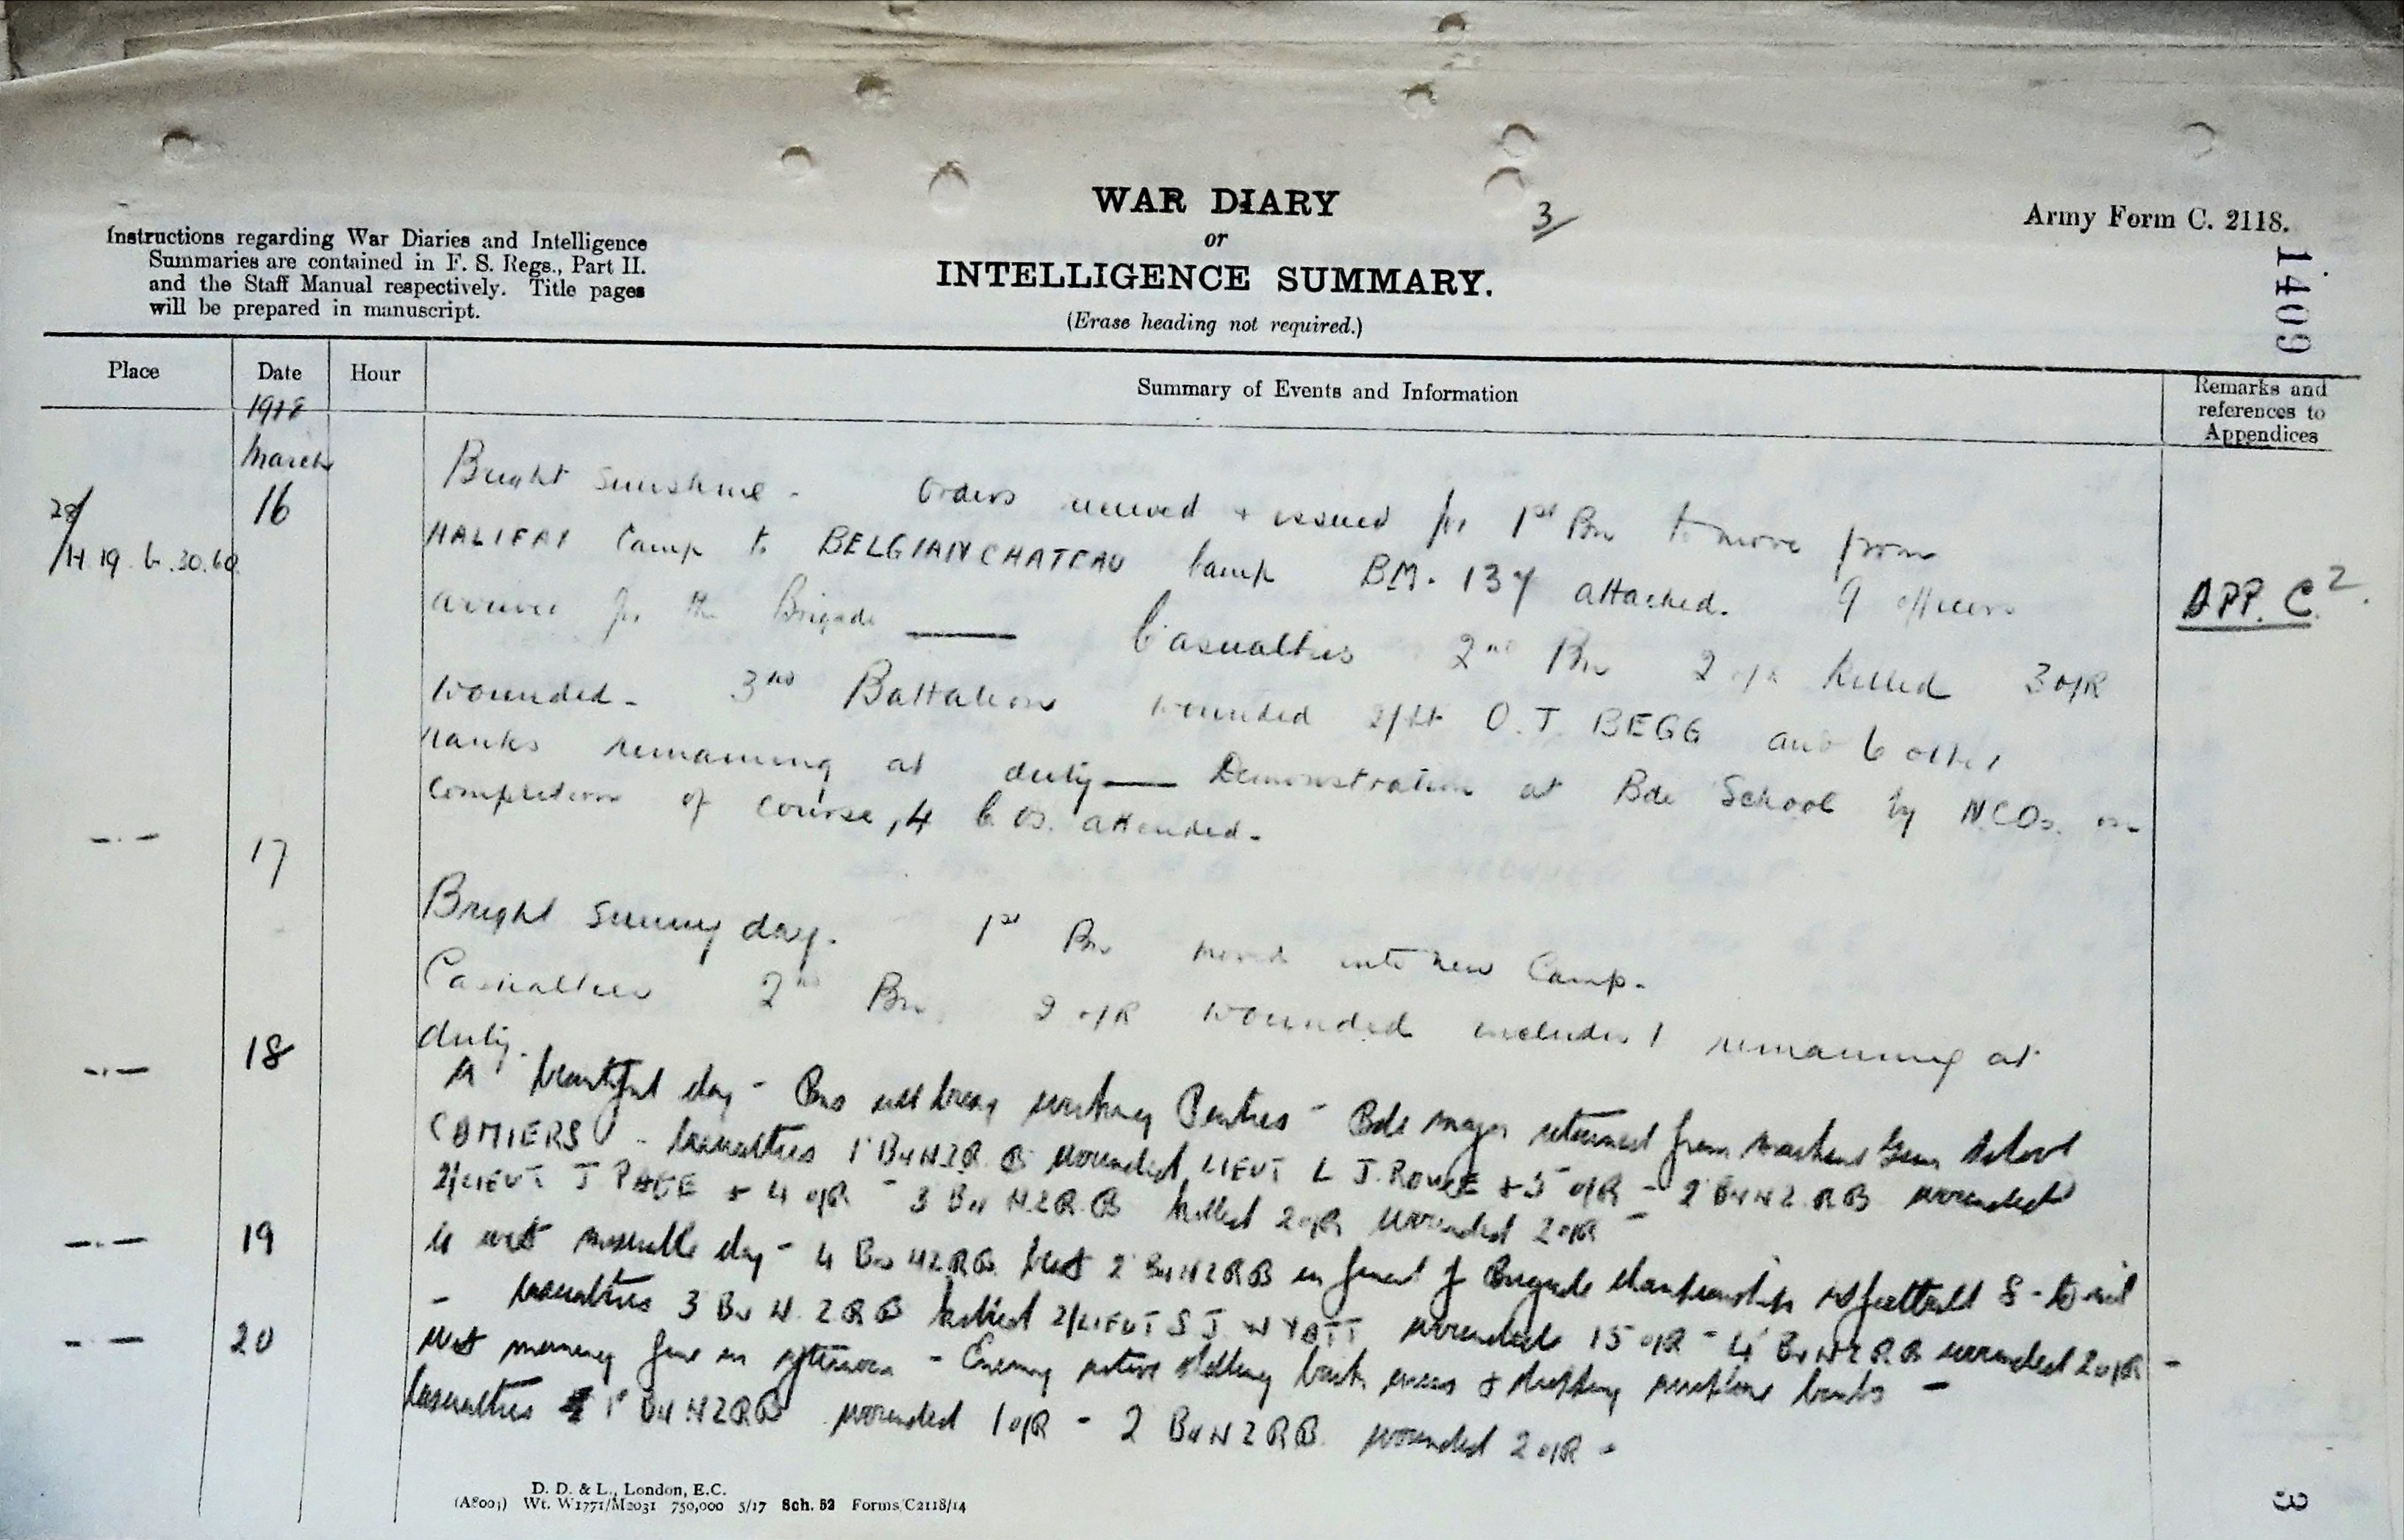 WAR DIARY
or
INTELLIGENCE SUMMARY.
(Erase heading not required.)
3/
Army Form C. 2118.
1409
Instructions regarding War Diaries and Intelligence
Summaries are contained in F. S. Regs., Part II.
and the Staff Manual respectively. Title pages
will be prepared in manuscript.
Place Date Hour Summary of Events and Information Remarks and references to Appendices
1918
March
28/ H.19.b.30.60 16 Bright sunshine - Orders received + issued for 1st Bn to move from
HALIFAX Camp to BELGIAN CHATEAU Camp BM. 137 attached. 9 officers
APP. C2.
arrived for the Brigade —— Casualties 2nd Bn 2 o/R killed 3 o/R
wounded - 3rd Battalion wounded 2/Lt O.T. BEGG and 6 other
ranks remaining at duty —— Demonstration at Bde School by N.C.Os. on
completion of course, 4 C.Os. attended -
-.- 17 Bright sunny day. 1st Bn moved into new Camp.
Casualties 2nd Bn. 2 o/R wounded includes 1 remaining at
duty.
-.- 18 A beautiful day - Bns all working Parties - Bde major returned from machine Gun School
CAMIERS - Casualties 1 Bn N.Z.R.B. wounded LIEUT L J. ROWE + 5 o/R - 2 Bn N.Z.R.B wounded
2/LIEUT J PAGE + 4 o/R - 3 Bn N.Z.R.B killed 2 o/R wounded 2 o/R -
-.- 19 A wet miserable day - 4 Bn N.Z.R.B. beat 2 Bn N.Z.R.B in final of Brigade championship football 8 - to nil
- Casualties 3 Bn N.Z.R.B killed 2/LIEUT S J WYATT wounded 15 o/R - 4 Bn N.Z.R.B wounded 2 o/R -
-.- 20 Wet morning fine in afternoon - Enemy active shelling back areas + dropping aeroplane bombs -
Casualties 1 Bn N.Z.R.B wounded 1 o/R - 2 Bn N.Z.R.B. wounded 2 o/R -
D. D. & L., London, E.C.
(A8001) Wt. W1771/M2031 750,000 5/17 Sch. 52 Forms/C2118/14
3